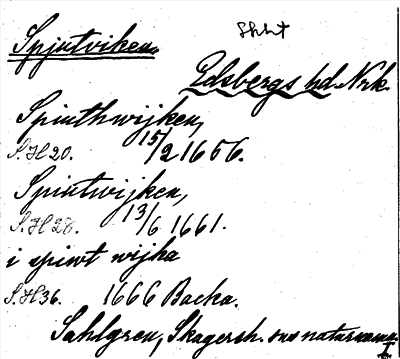 Shht
Spjutviken.
Edsbergs hd. Nrk.
Spiuthwijken,
S.H 20. 15/2 1656.
Spiutwijken,
S.H 28. 13/6 1661.
i spiwt wijka
S.H 36. 1666 Backa.
Sahlgren, Skagersh. sns naturnamn.
I